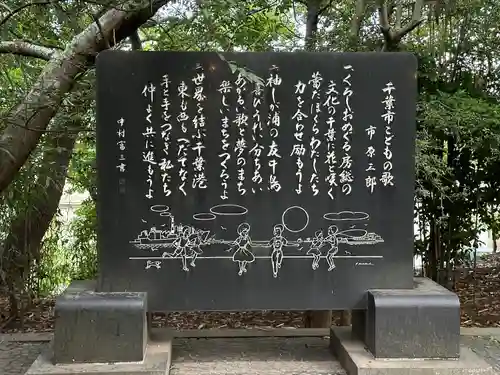 千葉市こどもの歌
市原三郎
一、くろしおめぐる房総の
文化の千葉に花と咲く
蕾だぼくらわたしたち
力を合せ励もうよ
二、袖しが浦の友千鳥
喜びうれい分ちあい
かおる歌と夢のまち
楽しいまちをつくろうよ
三、世界を結ぶ千葉港
東も西もへだてなく
手と手をつなぎ私たち
仲よく共に進もうよ
中村富三書